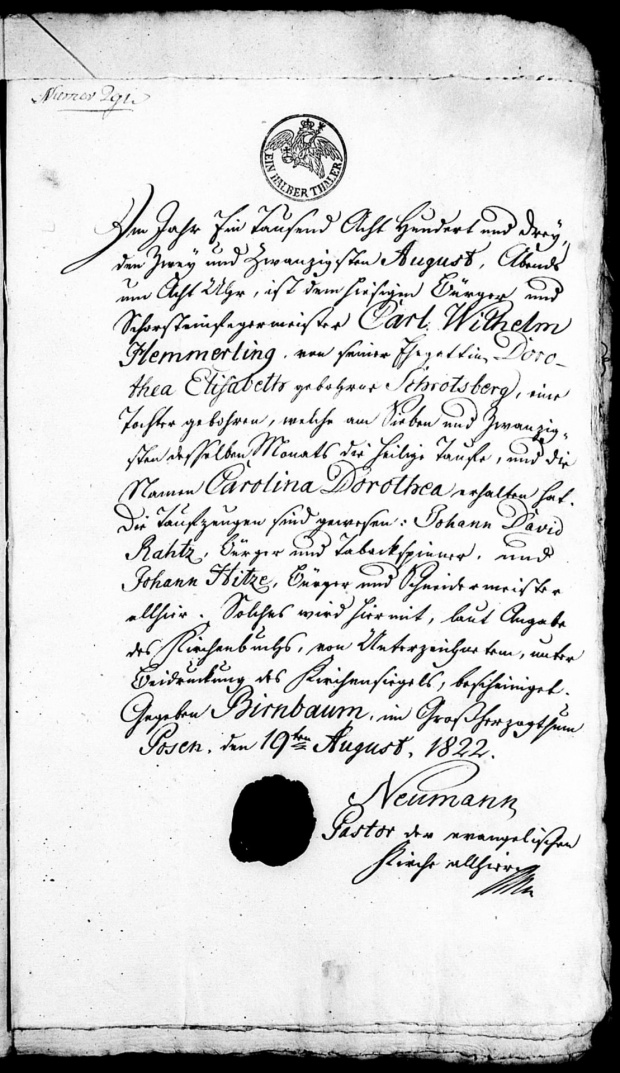 Numer 291.
EIN HALBER THALER
Im Jahr Ein Tausend Acht Hundert und drey,
den Zwey und Zwanzigsten August, Abends
um Acht Uhr, ist dem hiesigen Bürger und
Schorsteinfegermeister Carl Wilhelm
Hemmerling, von seiner Ehegattin, Doro-
thea Elisabeth gebohrne Schrotsberg, eine
Tochter gebohren, welche am Sieben und Zwanzig-
sten desselben Monats die heilige Taufe, und die
Namen Carolina Dorothea erhalten hat.
Die Taufzeugen sind gewesen: Johann David
Rahtz, Bürger und Tabackspinner, und
Johann Hitze, Bürger und Schneidermeister
allhier. Solches wird hiermit, laut Angabe
des Kirchenbuchs, von Unterzeichnetem, unter
Beidruckung des Kirchensiegels, bescheiniget.
Gegeben Birnbaum, im Großherzogthum
Posen, den 19ten August, 1822.
Neumann,
Pastor der evangelischen
Kirche allhier